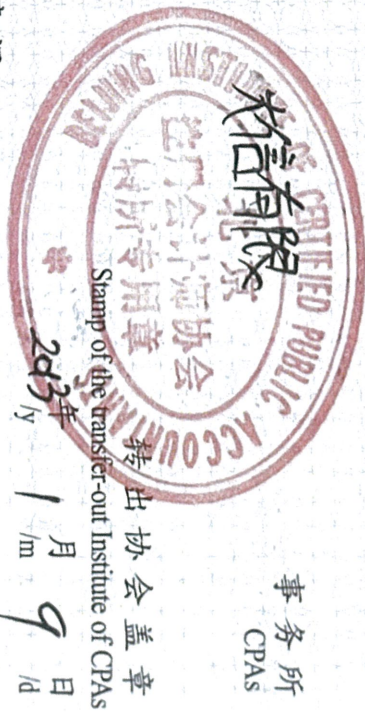 信有限
事务所
CPAs
BEIJING INSTITUTE OF CERTIFIED PUBLIC ACCOUNTANTS
北京
注册会计师协会
转所专用章
转出协会盖章
Stamp of the transfer-out Institute of CPAs
2013年 1月 9日
/y /m /d